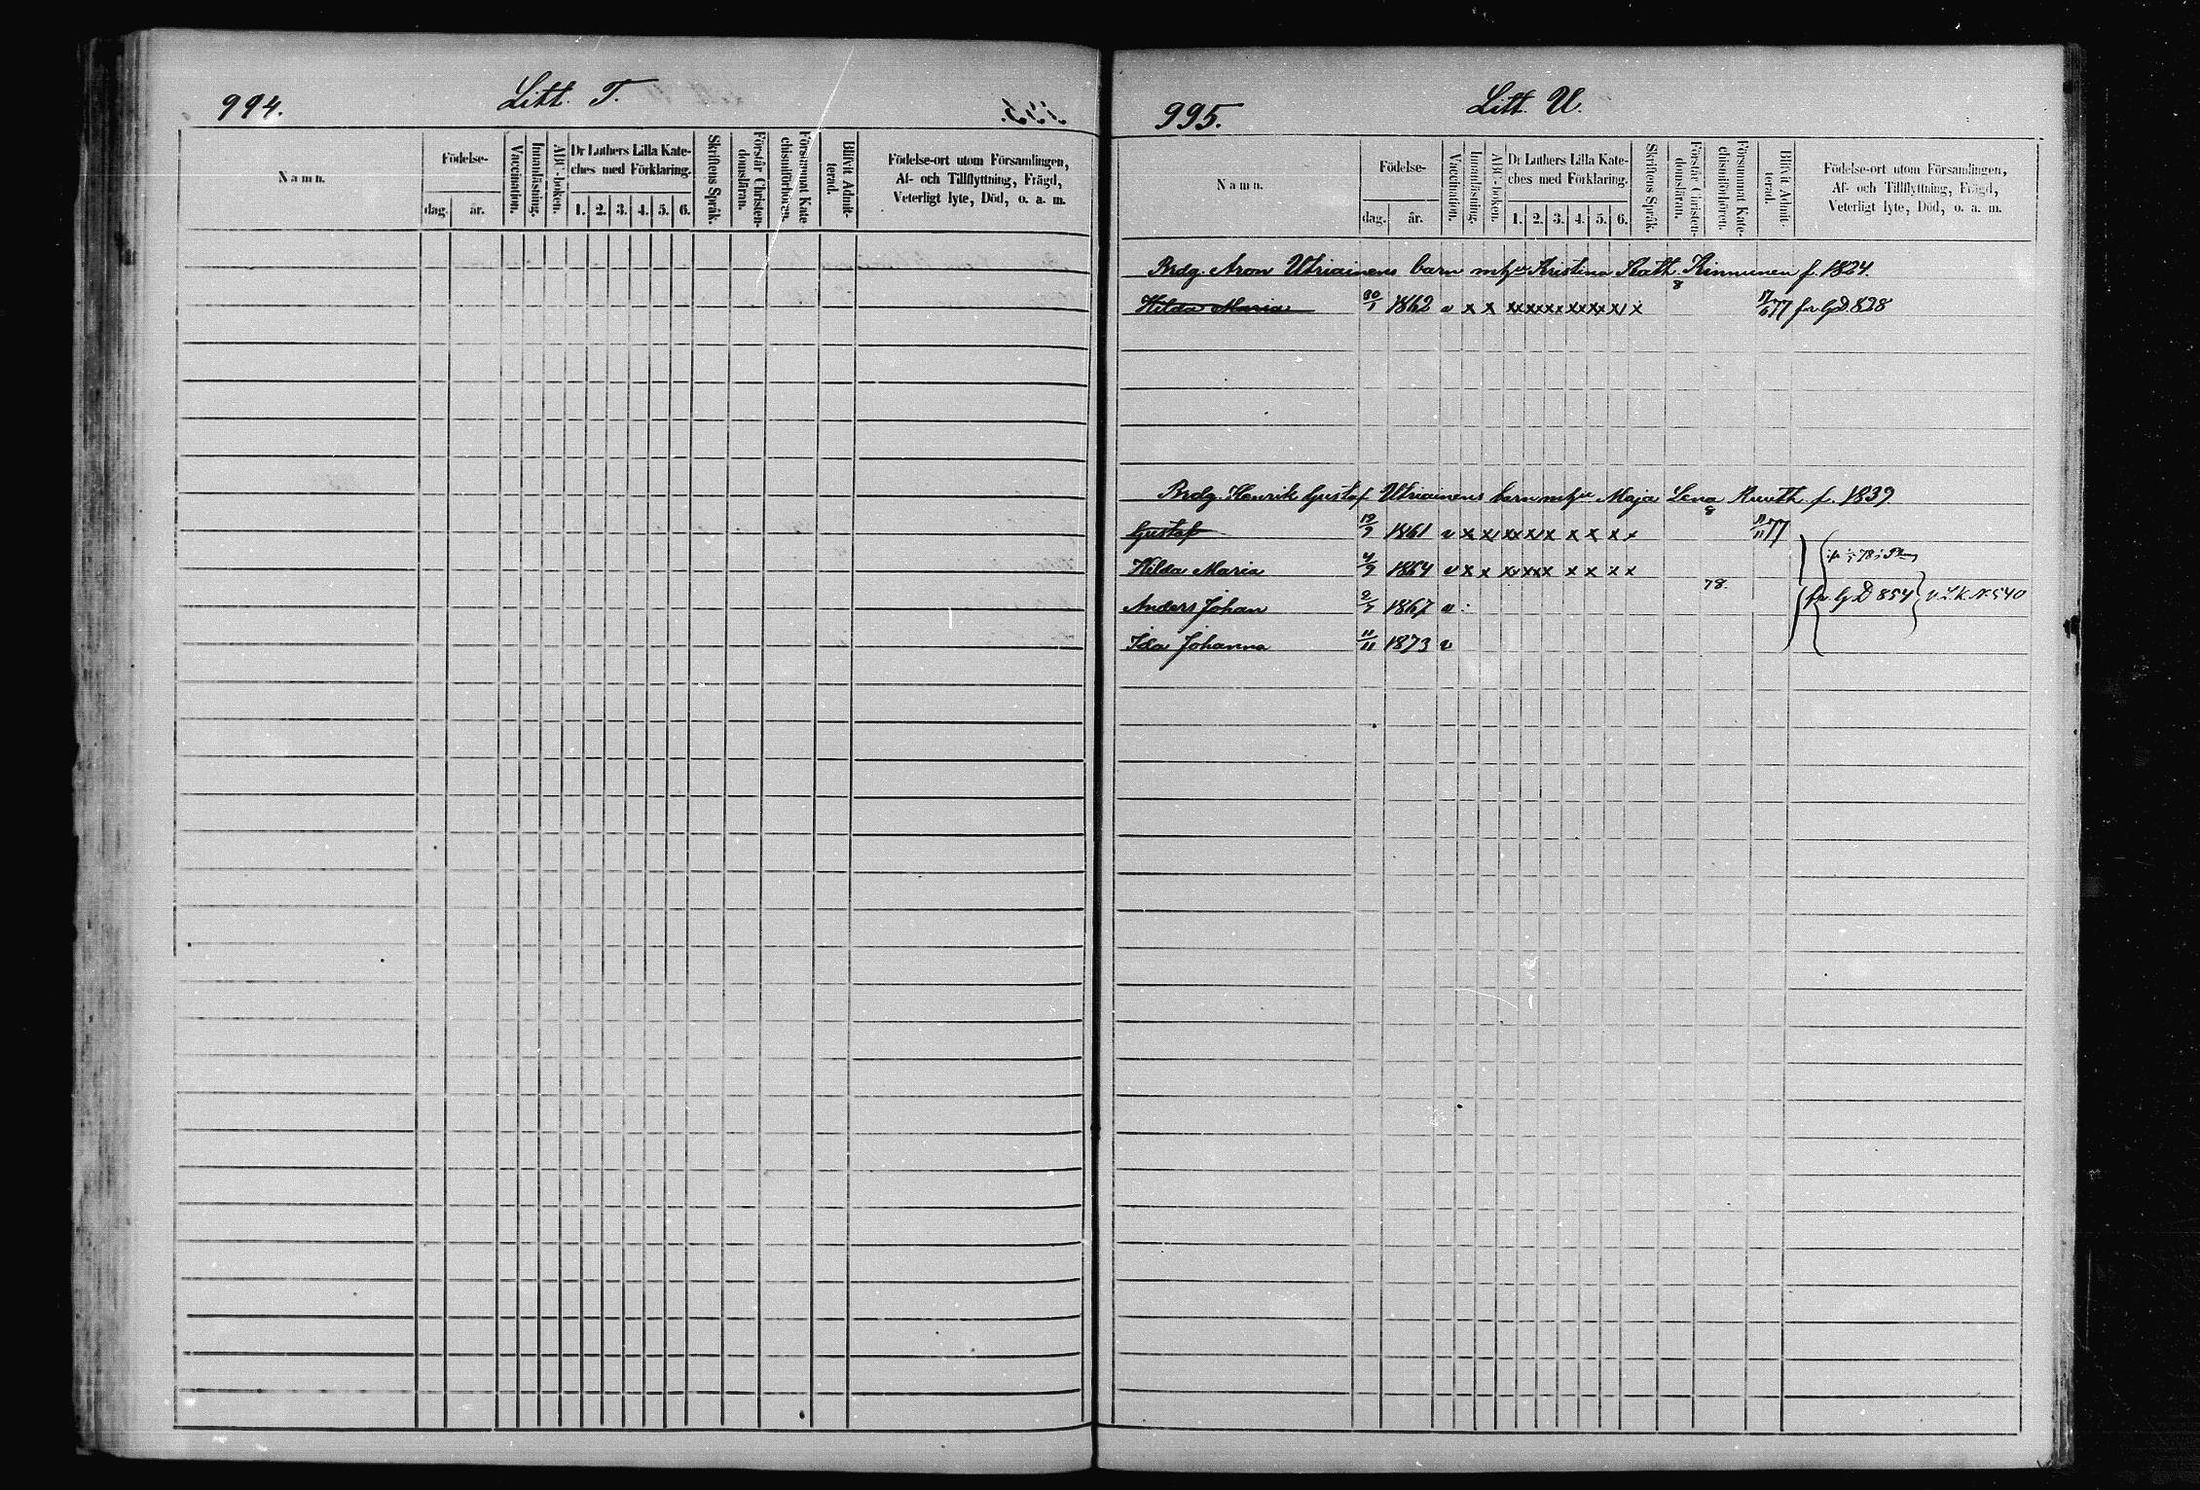 994.
Litt. T.
Namn.
Födelse-
dag.
år.
Vaccination.
Innanläsning.
ABC-boken.
Dr Luthers Lilla Kate-
ches med Förklaring.
1. 2. 3. 4. 5. 6.
Skriftens Språk.
Förstår Christen-
domsläran.
Försummat Kate-
chismiförhören.
Blifvit Admit-
terad.
Födelse-ort utom Församlingen,
Af- och Tillflyttning, Frägd,
Veterligt lyte, Död, o. a. m.
995.
Litt. U.
Namn.
Födelse-
dag.
år.
Vaccination.
Innanläsning.
ABC-boken.
Dr Luthers Lilla Kate-
ches med Förklaring.
1. 2. 3. 4. 5. 6.
Skriftens Språk.
Förstår Christen-
domsläran.
Försummat Kate-
chismiförhören.
Blifvit Admit-
terad.
Födelse-ort utom Församlingen,
Af- och Tillflyttning, Frägd,
Veterligt lyte, Död, o. a. m.
Brdg. Aron Utriainens barn m h u Kristina Kath. Kinnunen f. 1824.
Hilda Maria 30/1 1862 v x x xxxxx xxxx x x 77 fr. G D. 828
Brdg. Henrik Gustaf Utriainens barn m h u Maja Lena Ruuth f. 1839.
Gustaf 19/9 1861 v x x xx xx x x x x 77
Hilda Maria 4/9 1864 v x x xx xx x x x x x
78.
Anders Johan 1867 v fr. G D 854 v. L. K. N. 540
Ida Johanna 11/11 1873 v